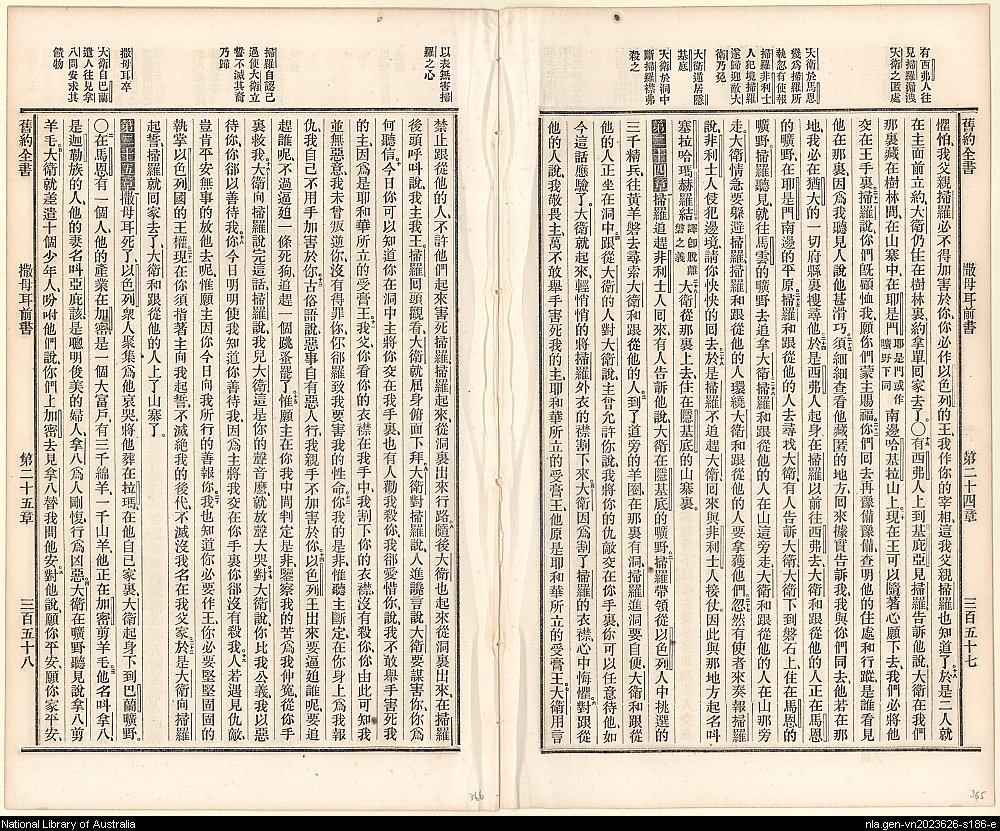 有西弗人往
見掃羅洩漏
大衛之匿處
大衛於馬恩
幾為掃羅所
執忽有使報
掃羅非利士
人犯境掃羅
遂歸迎敵大
衛乃免
大衛遁居隱
基底
大衛於洞中
斷掃羅襟弗
殺之
舊約全書 撒母耳前書 第二十四章 三百五十七
懼怕我父親掃羅必不得加害於你你必作以色列的王我作你的宰相這我父親掃羅也知道了於是二人就
在主面前立約大衛仍住在樹林裏約拿單回家去了〇有西弗人上到基庇亞見掃羅告訴他說大衛在我們
那裏藏在樹林間在山寨中在耶是門耶是門或作曠野下同南邊哈基拉山上現在王可以隨著心願下去我們必將他
交在王手裏掃羅說你們旣顧恤我願你們蒙主賜福你們回去再豫備豫備查明他的住處和行蹤是誰看見
他在那裏因為我聽見人說他甚滑巧須細細查看他藏匿的地方回來據實告訴我我與你們同去他若在那
地我必在猶大的一切府縣裏搜尋他於是西弗人起身在掃羅以前往西弗去大衛和跟從他的人正在馬恩
的曠野在耶是門南邊的平原掃羅和跟從他的人去尋找大衛有人告訴大衛大衛下到磐石上住在馬恩的
曠野掃羅聽見就往馬雲的曠野去追拿大衛掃羅和跟從他的人在山這旁走大衛和跟從他的人在山那旁
走大衛情急要躱避掃羅掃羅和跟從他的人環繞大衛和跟從他的人要拿獲他們忽然有使者來奏報掃羅
說非利士人侵犯邊境請你快快的回去於是掃羅不追趕大衛回來與非利士人接仗因此與那地方起名叫
塞拉哈瑪赫羅結譯卽脫離磐之義大衛從那裏上去住在隱基底的山寨裏
第二十四章掃羅追趕非利士人回來有人告訴他說大衛在隱基底的曠野掃羅帶領從以色列人中挑選的
三千精兵往黃羊磐去尋索大衛和跟從他的人到了道旁的羊圈在那裏有洞掃羅進洞要自便大衛和跟從
他的人正坐在洞中跟從大衛的人對大衛說主曾允許你說我將你的仇敵交在你手裏你可以任意待他如
今這話應驗了大衛就起來輕悄悄的將掃羅外衣的襟割下來大衛因為割了掃羅的衣襟心中悔懼對跟從
他的人說我敬畏主萬不敢舉手害死我的主耶和華所立的受膏王他原是耶和華所立的受膏王大衛用言
以表無害掃
羅之心
掃羅自認己
過使大衛立
誓不滅其裔
乃歸
撒母耳卒
大衛自巴蘭
遣人往見拿
八問安求其
餽物
禁止跟從他的人不許他們起來害死掃羅掃羅起來從洞裏出來行路隨後大衛也起來從洞裏出來在掃羅
後頭呼叫說我主我王掃羅回頭觀看大衛就屈身俯面下拜大衛對掃羅說人進讒言說大衛要謀害你你為
何聽信今日你可以知道你在洞中主將你交在我手裏也有人勸我殺你我卻愛惜你說我不敢舉手害死我
的主因為是耶和華所立的受膏王我父你看你的衣襟在我手中我割下你的衣襟沒有殺你你由此可知我
並無惡意我未曾叛逆你沒有得罪你你卻羅致我要害我的性命你我的是非惟聽主斷定在你身上為我報
仇我自己不用手加害於你古俗語說惡事自有惡人行我親手不加害於你以色列王出來要逼廹誰呢要追
趕誰呢不過逼廹一條死狗追趕一個跳蚤罷了惟願主在你我中間判定是非鑒察我的苦為我伸寃從你手
裏救我大衛向掃羅說完這話掃羅說我兒大衛這是你的聲音麽就放聲大哭對大衛說你比我公義我以惡
待你你卻以善待我你今日明明使我知道你善待我因為主將我交在你手裏你卻沒有殺我人若遇見仇敵
豈肯平安無事的放他去呢惟願主因你今日向我所行的善報你我也知道你必要作王你必要堅堅固固的
執掌以色列國的王權現在你須指著主向我起誓不滅絕我的後代不滅沒我名在我父家於是大衛向掃羅
起誓掃羅就回家去了大衛和跟從他的人上了山寨了
第二十五章撒母耳死了以色列衆人聚集為他哀哭將他葬在拉瑪在他自己家裏大衛起身下到巴蘭曠野
〇在馬恩有一個人他的產業在加密是一個大富戶有三千綿羊一千山羊他正在加密剪羊毛他名叫拿八
是迦勒族的人他的妻名叫亞庇該是聰明俊美的婦人拿八為人剛愎行為凶惡大衛在曠野聽見說拿八剪
羊毛大衛就差遣十個少年人吩咐他們說你們上加密去見拿八替我問他安對他說願你平安願你家平安
舊約全書 撒母耳前書 第二十五章 三百五十八
366
365
National Library of Australia
nla.gen-vn2023626-s186-e